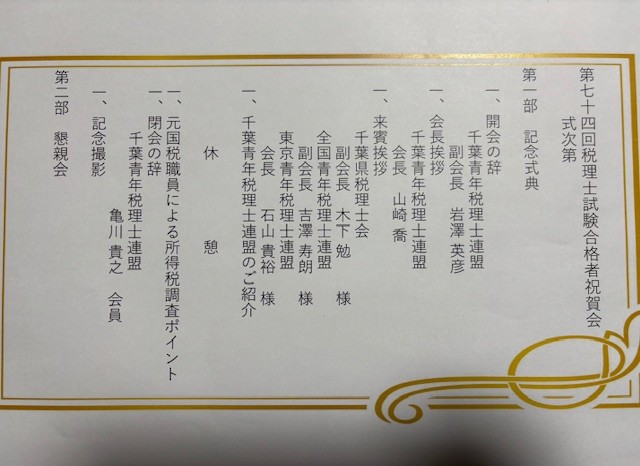 第七十四回税理士試験合格者祝賀会
式次第
第一部　記念式典
一、開会の辞
千葉青年税理士連盟
副会長　岩澤 英彦
一、会長挨拶
千葉青年税理士連盟
会長　山崎 喬
一、来賓挨拶
千葉県税理士会
副会長　木下 勉　様
全国青年税理士連盟
副会長　吉澤 寿朗　様
東京青年税理士連盟
会長　石山 貴裕　様
一、千葉青年税理士連盟のご紹介
休　憩
一、元国税職員による所得税調査ポイント
一、閉会の辞
千葉青年税理士連盟
亀川 貴之　会員
一、記念撮影
第二部　懇親会